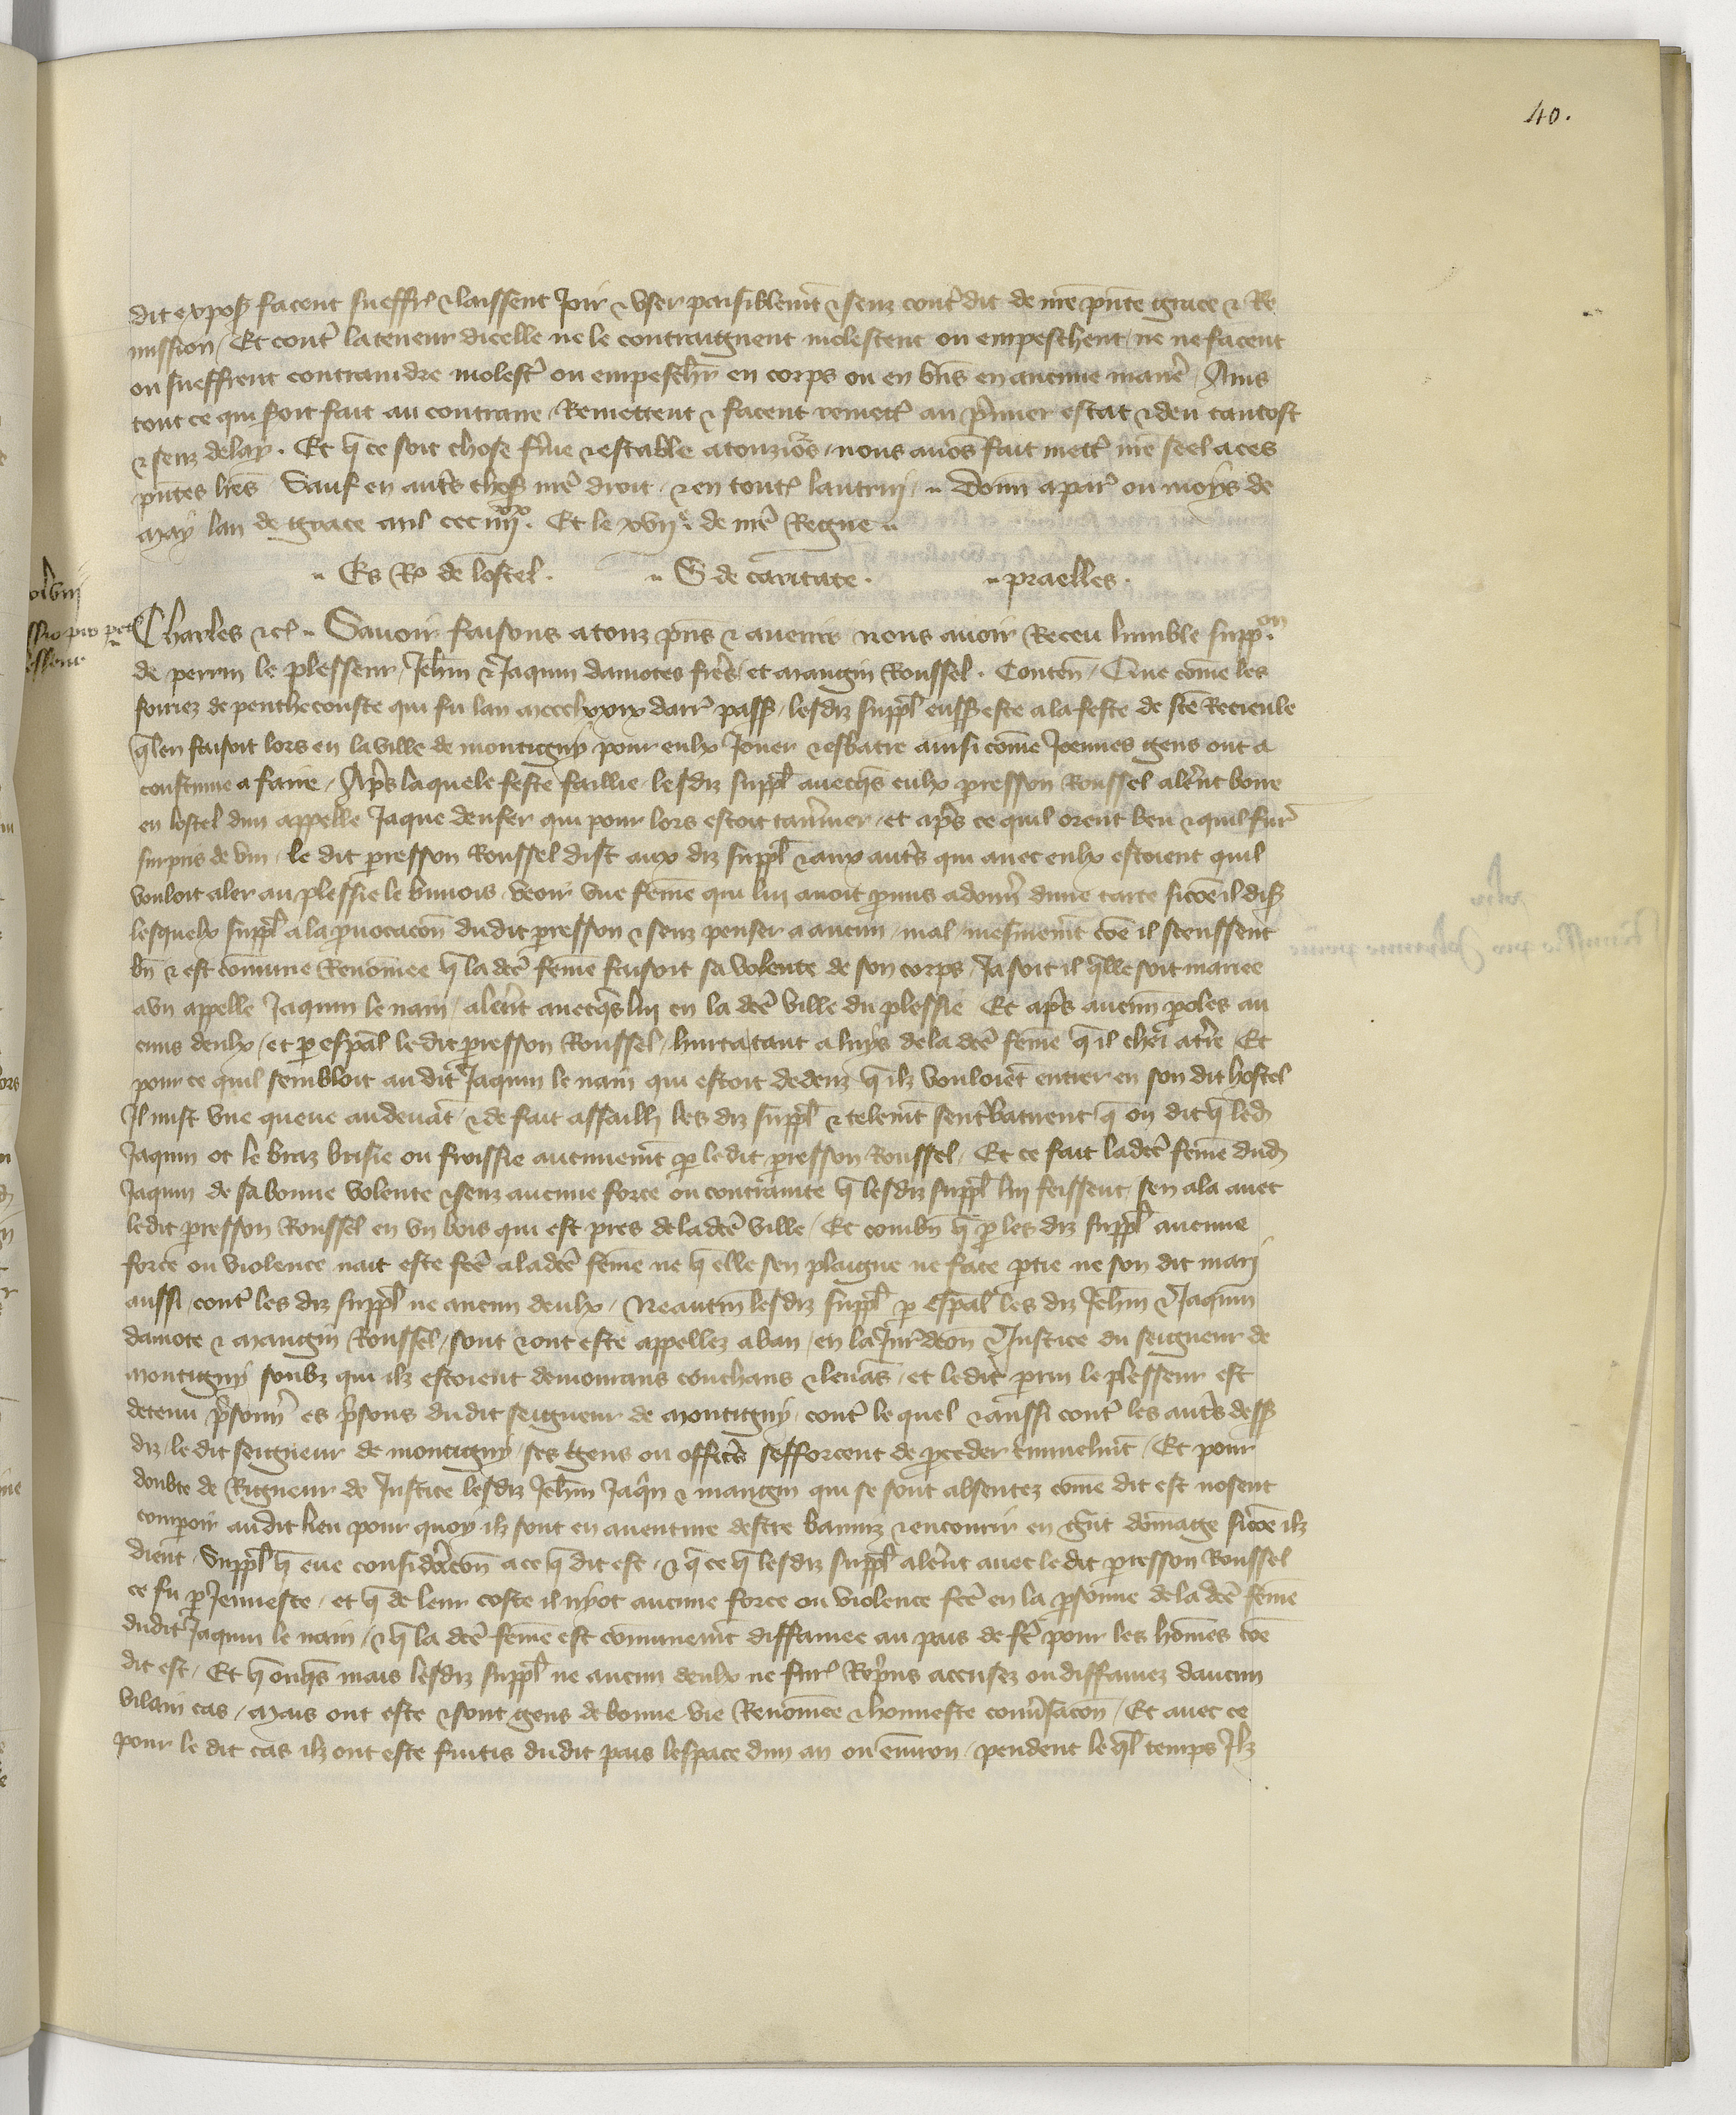 40.
dit expos facent sueffr & laissent Joir & user paisiblemt & senz contdit de nre pnte grace & Re
mission / Et cont la teneur dicelle ne le contraignent molestent ou empeschent / ne ne facent
ou sueffrent contraindre molest ou empeschr en corps ou en bns en aucune manie / Ains
tout ce qui soit fait au contraire Remettent & facent remett au pmier estat & deu tantost
& senz delay . Et q ce soit chose ferme & estable a touziors / nous avos fait mett nre seel a ces
pntes lres Sauf en auts chos nre droit & en tout lautruy .. Donn a par ou moys de
may lan de grace mil ccc iiiixx. Et le xvije. de nre Regne ..
.. Es Rq de lostel . .. G de caritate . .. praelles .
Charles &c .. Savoir faisons a touz pns & avenir nous avoir Receu humble suppon
de perrin le plesseur / Jehin & Jaquin damotes fres / et mangin Roussel . Conten / Que come les
foiriez de penthecouste qui fu lan mccclxxix darr pass / lesdiz suppl euss este a la feste de ste Recieule
q len faisoit lors en la ville de montigny pour eulx Jouer & esbatre ainsi come Joennes gens ont a
coustume a faire / Aps laquele feste faillie / lesdiz suppl avecqs eulx presson Roussel alernt boire
en lostel dun appelle Jaque denfer qui pour lors estoit tavernier / et aps ce quil orent beu & quil fur
surpris de vin / le dit presson Roussel dist aux diz suppl & aux auts qui avec eulx estoient quil
vouloit aler au plessie le bunois / veoir une feme qui lui avoit pmis a donn dune tarte sicoe il dis
lesquelx suppl a la pvocacon dudit presson & senz penser a aucun mal / mesmemt coe il sceussent
bn & est comune Renomee q la dce feme faisoit sa volente de son corps / Ja soit il qlle soit mariee
a un appelle Jaquin le nain / alernt avecqs lui en la dce ville du plessie Et aps aucuns poles au
euns deulx / et p espal le dit presson Roussel / hurta tant a luys de la dce feme q il chei a tre / Et
pour ce quil sembloit au dit Jaquin le nain qui estoit dedenz q ilz vouloient entrer en son dit hostel
Il mist une queue audevat & de fait assailli les diz suppl & telemt sentrebatirent q on dit q led
Jaquin ot le braz brisie ou froissie aucunemt p le dit presson Roussel / Et ce fait ladce feme dud
Jaquin de sa bonne volente & senz aucune force ou contrainte q lesdiz suppl lui feissent / sen ala avec
ledit presson Roussel en un bois qui est pres de la dce ville / Et combn q p les diz suppl aucune
force ou violence nait este fce a la dce feme ne q elle sen plaigne ne face ptie ne son dit mari
aussi / cont les diz suppl ne aucun deulx / Neantm lesdiz suppl p espal les diz Jehin & Jaquin
damote & mangin Roussel / sont & ont este appellez a ban / en la Jurdcon & Justice du seigneur de
montigny soubz qui ilz estoient demourans couchans & levas / et le dit prrin le plesseur est
detenu psonn es psons dudit seigneur de montigny / cont le quel & aussi cont les auts dess
diz / le dit seigneur de montigny / ses gens ou offics sefforcent de pceder criminelmt / Et pour
doubte de Rigueur de Justice lesdiz Jehin Jaqn & mangin qui se sont absentez come dit est nosent
compoir audit lieu pour quoy ilz sont en aventure destre banniz & encourir en gnt domage sicoe ilz
dient / Suppl q eue consideracon a ce q dit est / & q ce q lesdiz suppl alernt avec le dit presson Roussel
ce fu p Jeunesse / et q de leur coste il nyot aucune force ou violence fce en la psonne de la dce feme
dudit Jaquin le nain / & q la dce feme est comunemt diffamee au pais de fe pour les homes coe
dit est / Et q onqs mais lesdiz suppl ne aucun deulx ne fur Repris accusez ou diffamez daucun
vilain cas / mais ont este & sont gens de bonne vie Renomee & honneste conversacon / Et avec ce
pour le dit cas ilz ont este fuitis dudit pais lespace dun an ou environ / pendent le ql temps Ilz